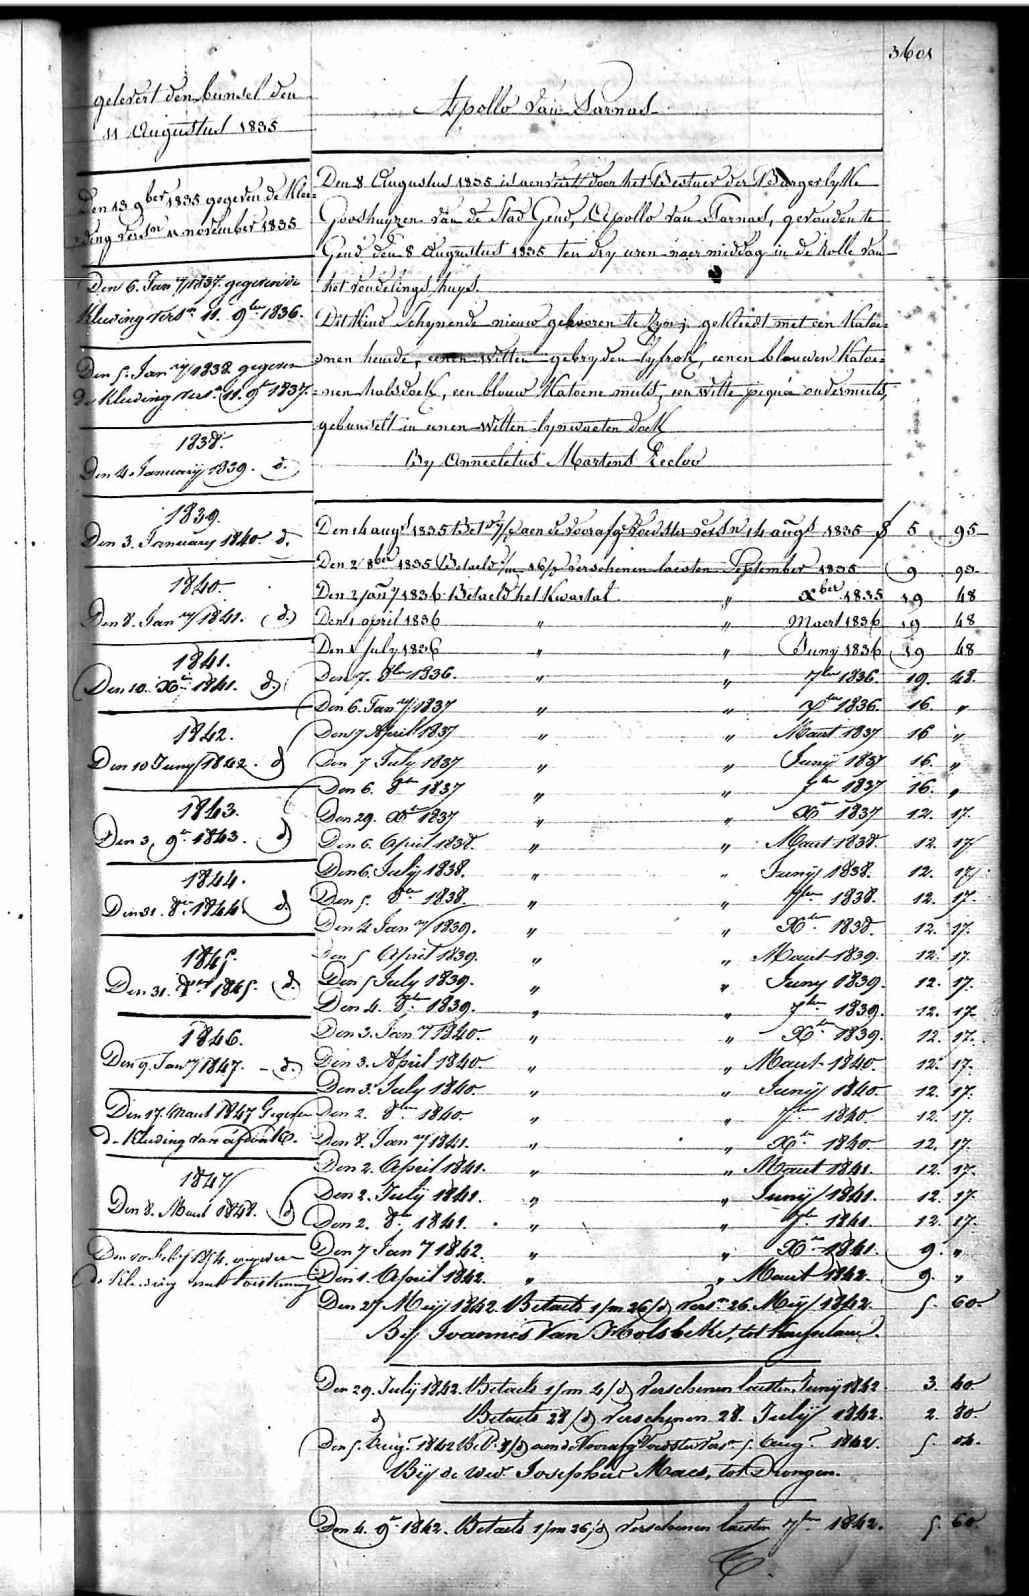 3601
gelevert den bunsel den
11 Augustus 1835
Apollo van Parnas
Den 13 9ber 1835 gegeven de Klee=
=ding versn 11 november 1835
Den 6. Jany 1837. gegeven de
Kleeding versn 11. 9ber 1836.
Den 5. Jany 1838 gegeven
de Kleeding versn 11. 9r 1837.
1838.
Den 4 January 1839. d.
1839.
Den 3. January 1840 d.
1840.
Den 8. Jany 1841. d.
1841.
Den 10. Xr 1841. d.
1842.
Den 10 Juny 1842. d
1843.
Den 3, 9r 1843. d
1844.
Den 31. 8r 1844. d.
1845.
Den 31. 1845. d.
1846.
Den 9. Jany 1847. - d.
Den 17. Maart 1847 Gegeven
de Kleeding van
1847
Den 8. Maart 1848. d
de Kleeding
Den 8 Augustus 1835 is aenveird door het Bestuer der Burgerlyke
Godshuyzen van de Stad Gend, Apollo van Parnas, gevonden te
Gend den 8 Augustus 1835 ten dry uren naer middag in de Rolle van
het vondelings huys.
Dit Kind schynende nieuw geboren te zyn; gekleedt met een Katoe=
=nen hemde, eenen witten gebryden lyfrok, eenen blauwen Katoe=
=nen halsdoek, een blouw Katoene muts, een witte pequé ondermuts,
gebunselt in eenen witten lynwaeten doek
By Anncletus Martens Eecloo
Den 14 augs 1835 Bet aen de voorafge voedster versn 14 augs 1835 5 95
Den 2 8ber 1835 Betaeld verschenen laesten September 1835 9 93
Den 2 jany 1836 Betaeld het Kwartal " Xber 1835 19 48
Den 1 april 1836 " " Maert 1836 19 48
Den 1 July 1836 " " Juny 1836 19 48
Den 7. 8ber 1836. " " 7ber 1836. 19. 48.
Den 6. Jany 1837 " " Xber 1836. 16. "
Den 7 April 1837 " " Maart 1837 16 "
Den 7 July 1837 " " Junij 1837 16. "
Den 6. 8r 1837 " " 7ber 1837 16. "
Den 29. Xr 1837 " " Xr 1837 12. 17.
Den 6. April 1838. " " Maart 1838. 12. 17
Den 6. Julij 1838. " " Junij 1838. 12. 17
Den 5. 8ber 1838. " " 7ber 1838. 12. 17.
Den 4 Jany 1839. " " Xber 1838. 12. 17.
Den 5 April 1839. " " Maart 1839. 12. 17.
Den 5 July 1839. " " Juny 1839. 12. 17.
Den 4. 8ber 1839. " " 7ber 1839. 12. 17.
Den 3. Jany 1840. " " Xber 1839. 12. 17.
Den 3. April 1840. " " Maart 1840. 12. 17.
Den 3. July 1840. " " Junij 1840. 12. 17.
Den 2. 8ber 1840. " " 7ber 1840. 12. 17.
Den 8. Jany 1841. " " Xber 1840. 12. 17.
Den 2. April 1841. " " Maart 1841. 12. 17.
Den 2. Julij 1841. " " Junij 1841. 12. 17.
Den 2. 8r 1841. " " 7r 1841. 12. 17.
Den 7 Jany 1842. " " Xr 1841. 9. "
Den 1. April 1842. " " Maart 1842. 9. "
Den 27 Meij 1842. Betaelt 1/m 26/d versn 26. Meij 1842. 5. 60.
Bij Joannes Van Holsbeke, tot
Den 29. Julij 1842. Betaelt 1/m 4/d verschenen laesten Junij 1842 3. 40
d Betaelt 28/d verschenen 28. Julij 1842. 2. 80.
Den 5. Augt 1842 aen de Voorafge Voedster versn 5. Augt 1842. 5. 04.
Bij de wed Josephus Maes, tot Drongen.
Den 4. 9r 1842. Betaelt 1/m 26/d verschenen laesten 7ber 1842. 5. 60.